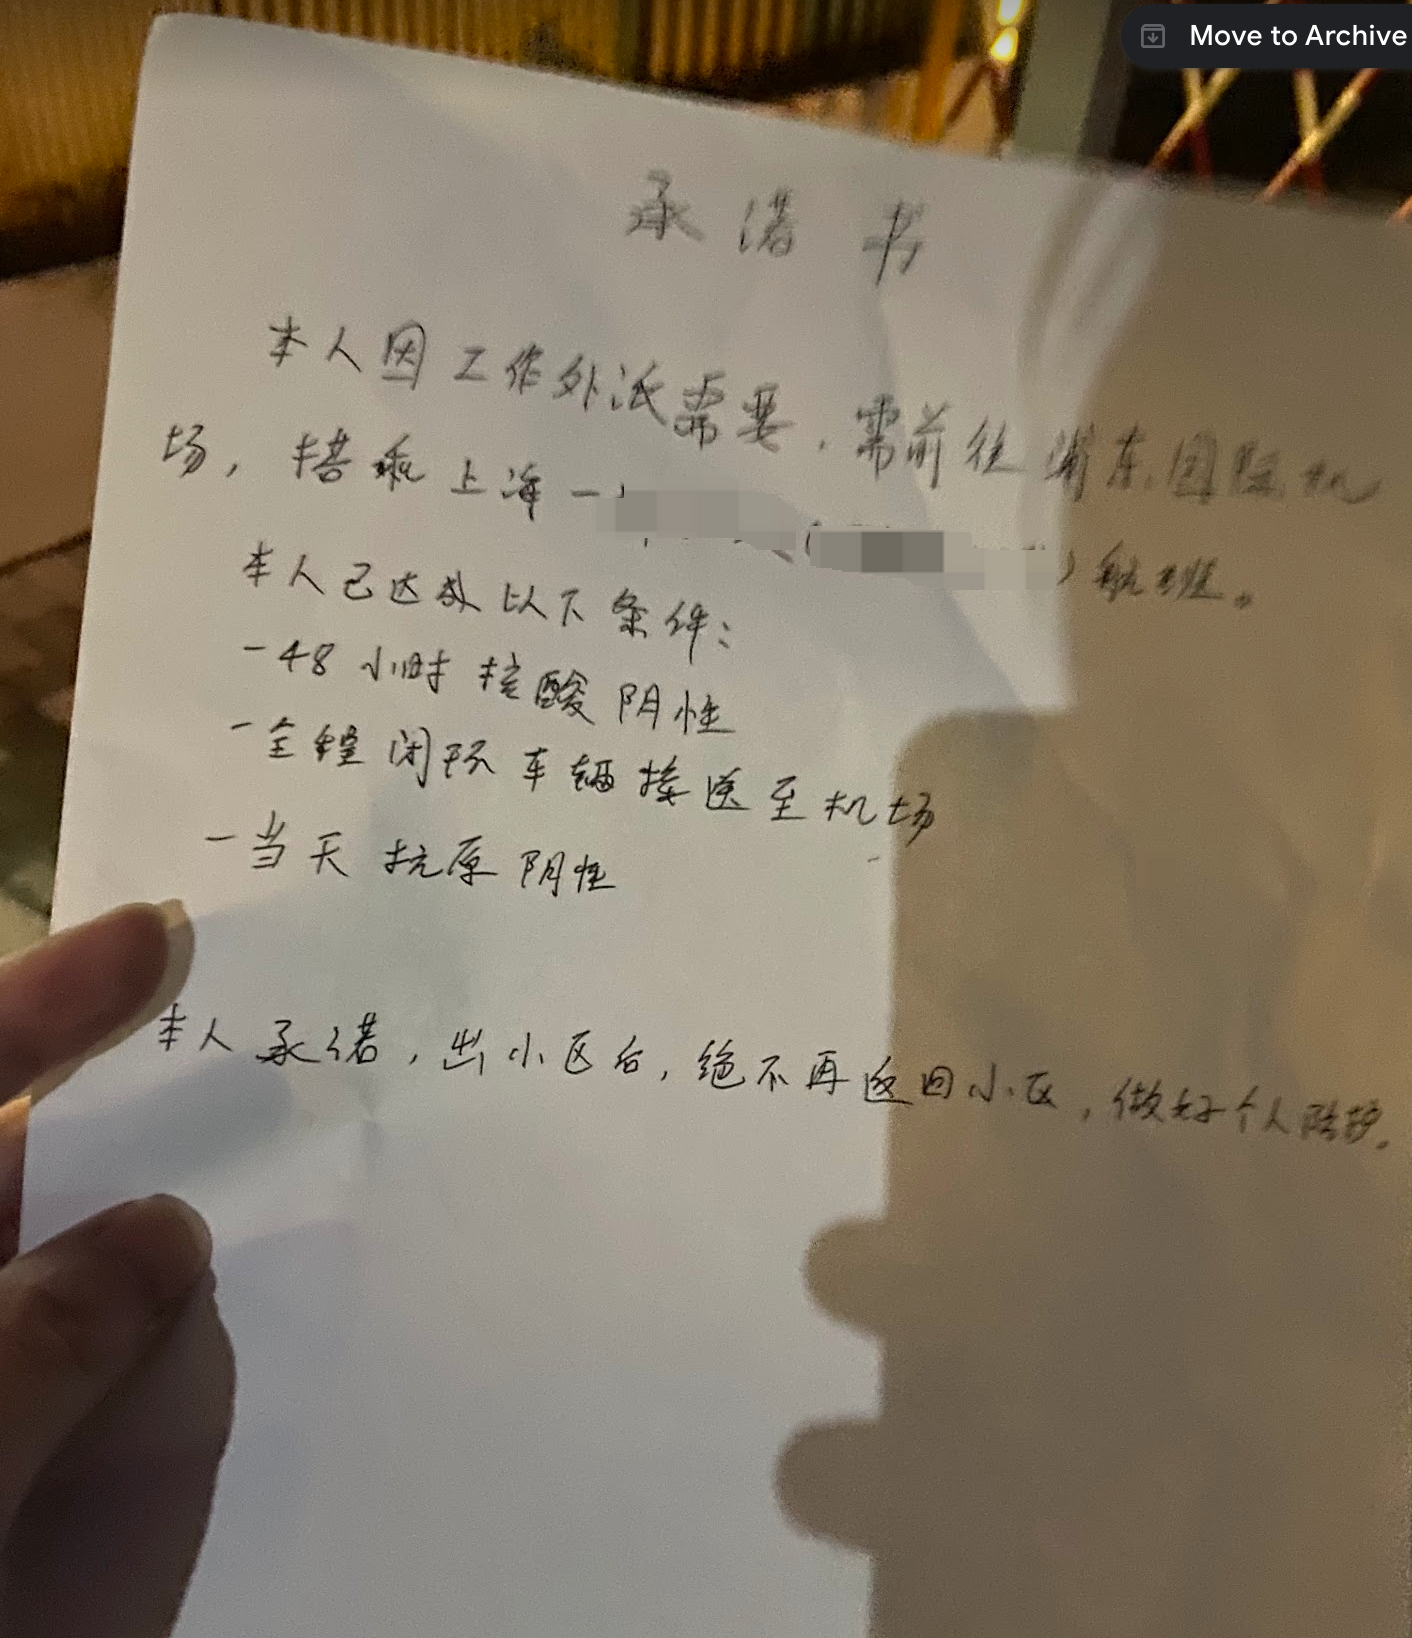 Move to Archive
承诺书
本人因工作外派需要，需前往浦东国际机
场，搭乘上海一
（
）航班。
本人已达成以下条件：
-48小时核酸阴性
-全程闭环车辆接送至机场
-当天抗原阴性
本人承诺，出小区后，绝不再返回小区，做好个人防护。